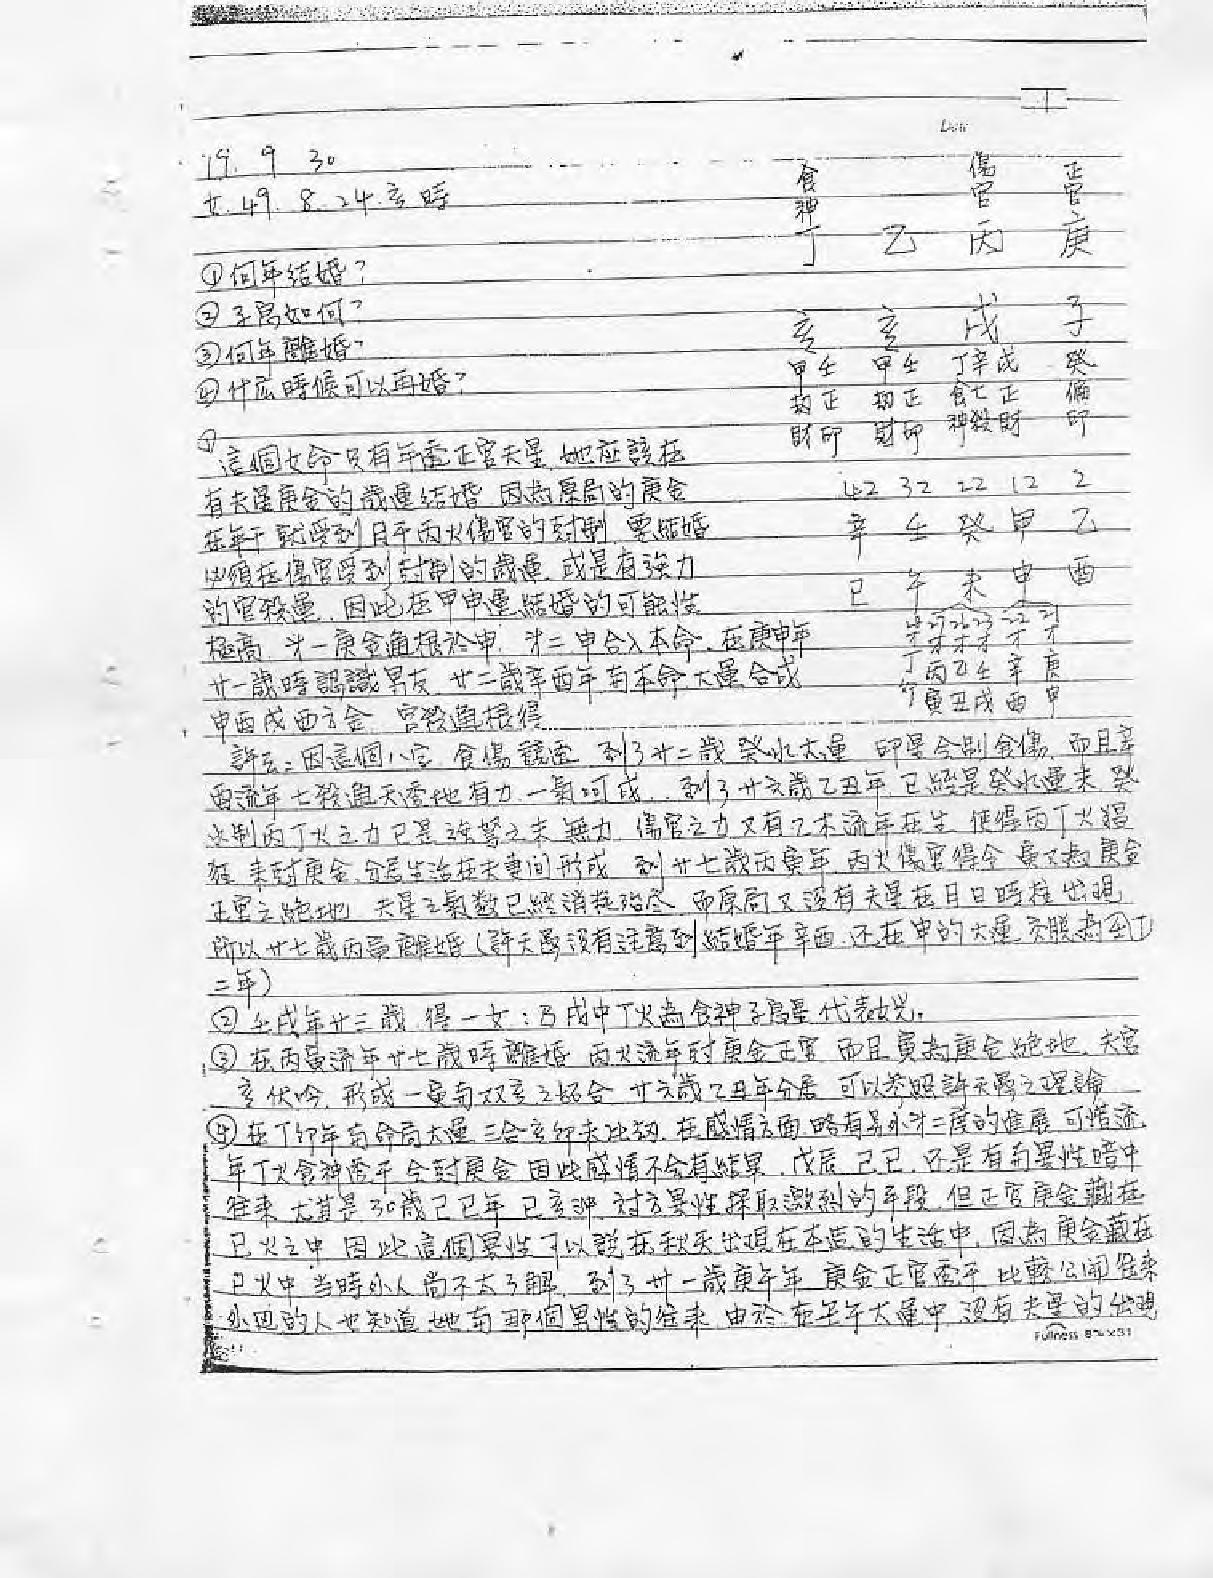 79. 9. 30
女. 49. 8. 24. 亥時
①何年結婚?
②子息如何?
③何年離婚?
④什広時候可以再婚?
食神 傷官 正官
丁 乙 丙 庚
亥 亥 戌 子
甲壬 甲壬 丁辛戊 癸
劫正 劫正 食七正 偏
財印 財印 神殺財 印
42 32 22 12 2
辛 壬 癸 甲 乙
巳 午 未 申 酉
27 26 23 22 21
丁 丙 乙 壬 辛 庚
卯 寅 丑 戌 酉 申
①這個女命只有年透正官夫星,她應該在
有夫星庚金的歲運結婚 因為原局的庚金
在年干就受到月干丙火傷官的尅制,要結婚
必須在傷官受到尅制的歲運,或是有強力
的官殺運,因此在甲申運結婚的可能性
極高 第一庚金通根於申,第二申合入本命,在庚申年
廿一歲時認識男友,廿二歲辛酉年南本命大運合成
申酉戌西方金,官殺通根得
許云:因這個八字,食傷競透,到了廿二歲癸水大運 印星會剋食傷,而且辛
酉流年七殺通天透地有力,一氣呵成..到了廿六歲乙丑年,已經是癸水運末,癸
水制丙丁火之力已是強弩之末無力,傷官之力又有乙木流年在生 使得丙丁火猖
狂 來尅庚金,分居生活在夫妻間形成 到廿七歲丙寅年,丙火傷官得令 寅又為庚金
正官之絕地 夫星之氣數已經消耗殆盡 而原局又沒有夫星在月日時柱出現
所以廿七歲丙寅離婚(許天 沒有注意到結婚年辛酉,还在申的大運,交脫為
二年)
②壬戌年廿三歲,得一女:乃戌中丁火為食神子息星代表女兒。
③在丙寅流年廿七歲時離婚 丙火流年尅庚金正官 而且寅為庚金絕地,夫宮
亥伏吟,形成一寅南双亥之 合 廿六歲乙丑年分居 可以參照許天 之理論
④在丁卯年南命局大運 三合亥卯未比劫,在感情方面,略有另外第二度的進展 可惜流
年丁火食神透干 会尅庚金 因此感情不会有結果,戊辰 己巳,还是有南異性暗中
往來 尤其是30歲己巳年 巳亥沖 對方異性採取激烈的手段,但正官庚金藏在
巳火之中 因此這個異性可以說在秋天出現在本造的生活中,因為庚金藏在
巳火中 当時外人尚不太了解,到了卅一歲庚午年 庚金正官透干 比較公開往來
外边的人也知道,她南那個異性的往來 由於在壬午大運中,沒有夫星的出現
Fullness